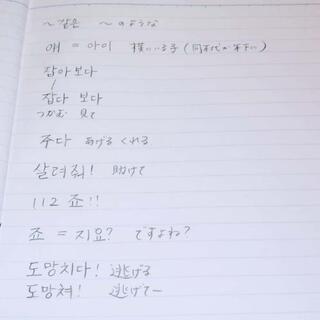 ～같은 ～のような
얘 = 아이 横にいる子(同年代か年下)
잡아보다
잡다 보다
つかむ 見て
주다 あげる くれる
살려줘! 助けて
112 죠!!
죠 = 지요? ですよね?
도망치다! 逃げる
도망쳐! 逃げてー